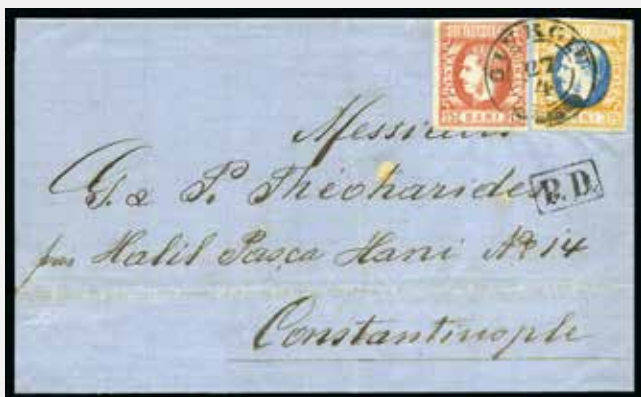 GIURGEVO
27
4
BANI
Messieurs
G. & P. Théocharides
P.D.
pur Halil Pasça Hani № 14
Constantinople